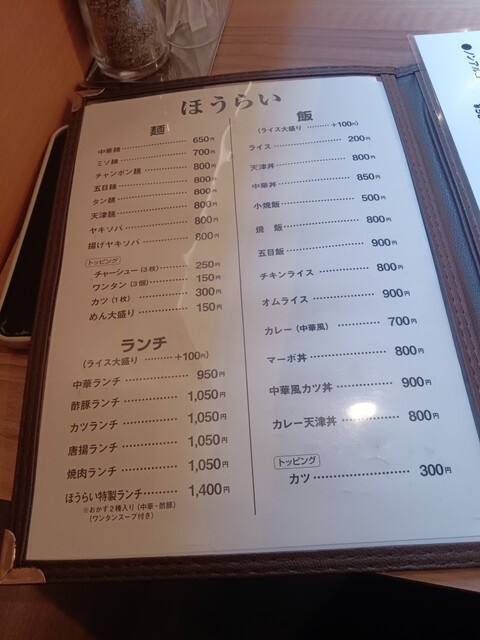 ほうらい
麺
中華麺 650円
ミソ麺 700円
チャンポン麺 800円
五目麺 800円
タン麺 800円
天津麺 800円
ヤキソバ 800円
揚げヤキソバ 800円
トッピング
チャーシュー(3枚) 250円
ワンタン(3個) 150円
カツ(1枚) 300円
めん大盛り 150円
ランチ
(ライス大盛り ………+100円)
中華ランチ 950円
酢豚ランチ 1,050円
カツランチ 1,050円
唐揚ランチ 1,050円
焼肉ランチ 1,050円
ほうらい特製ランチ 1,400円
※おかず2種入り(中華・酢豚)
(ワンタンスープ付き)
飯
(ライス大盛り ………+100円)
ライス 200円
天津丼 800円
中華丼 850円
小焼飯 500円
焼 飯 800円
五目飯 900円
チキンライス 800円
オムライス 900円
カレー(中華風) 700円
マーボ丼 800円
中華風カツ丼 900円
カレー天津丼 800円
トッピング
カツ 300円
●ノンアルコ